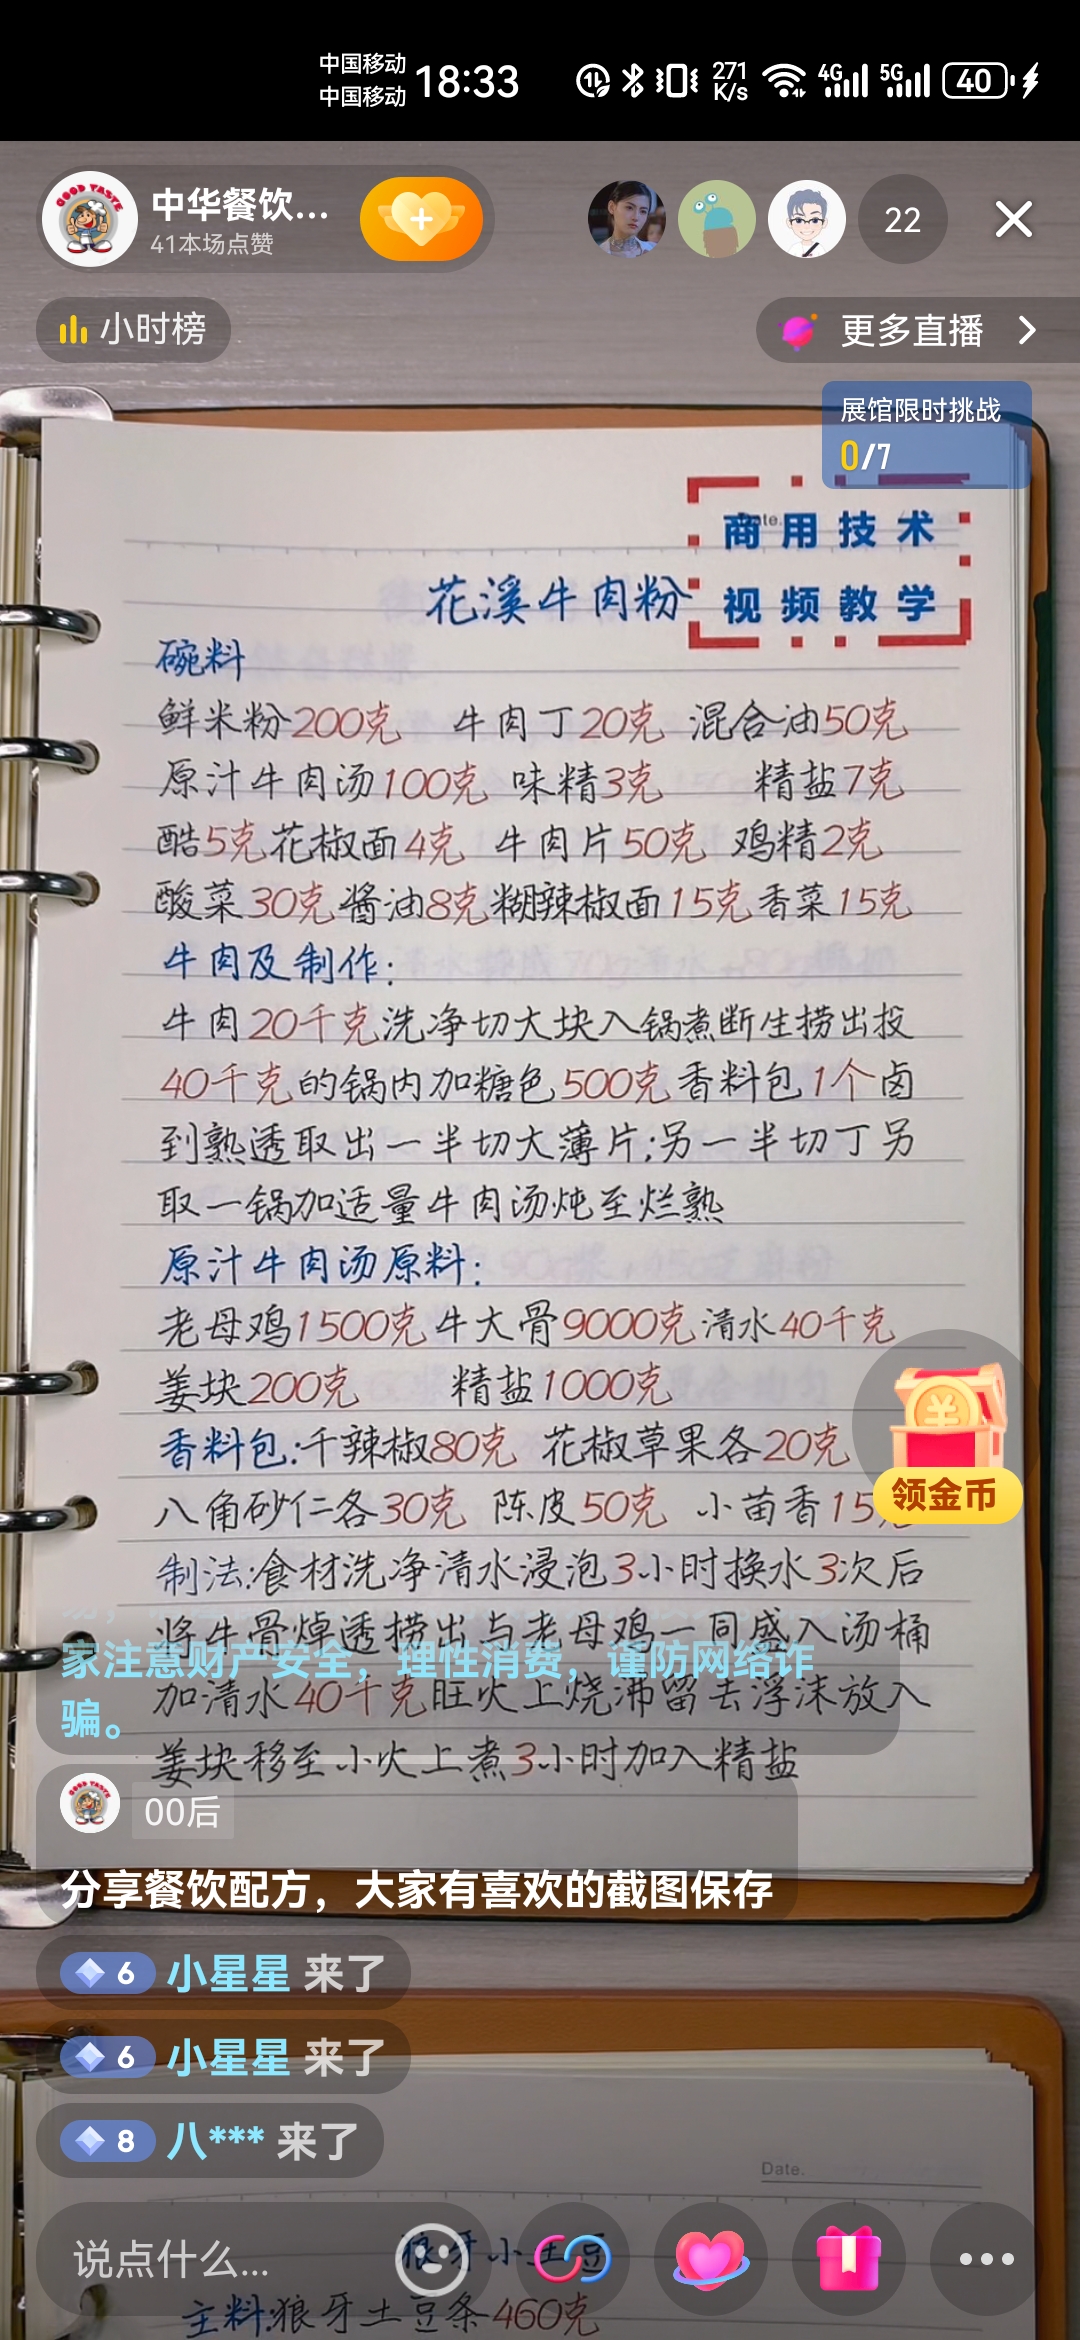 中国移动
中国移动
18:33
271
K/s
4G
5G
40
GOOD TASTE
中华餐饮...
41本场点赞
22
小时榜
更多直播
展馆限时挑战
0/7
商用技术
视频教学
花溪牛肉粉
碗料
鲜米粉200克 牛肉丁20克 混合油50克
原汁牛肉汤100克 味精3克 精盐7克
酷5克花椒面4克 牛肉片50克 鸡精2克
酸菜30克酱油8克糊辣椒面15克香菜15克
牛肉及制作:
牛肉20千克洗净切大块入锅煮断生捞出投
40千克的锅内加糖色500克香料包1个卤
到熟透取出一半切大薄片;另一半切丁另
取一锅加适量牛肉汤炖至烂熟
原汁牛肉汤原料:
老母鸡1500克牛大骨9000克清水40千克
姜块200克 精盐1000克
香料包:干辣椒80克 花椒草果各20克
八角砂仁各30克 陈皮50克 小苗香15
领金币
制法:食材洗净清水浸泡3小时换水3次后
将牛骨焯透捞出与老母鸡一同盛入汤桶
家注意财产安全，理性消费，谨防网络诈
加清水40千克旺火上烧沸留去浮沫放入
骗。
姜块移至小火上煮3小时加入精盐
00后
分享餐饮配方，大家有喜欢的截图保存
6 小星星 来了
6 小星星 来了
8 八*** 来了
Date.
说点什么...
狼牙小土豆
主料:狼牙土豆条460克